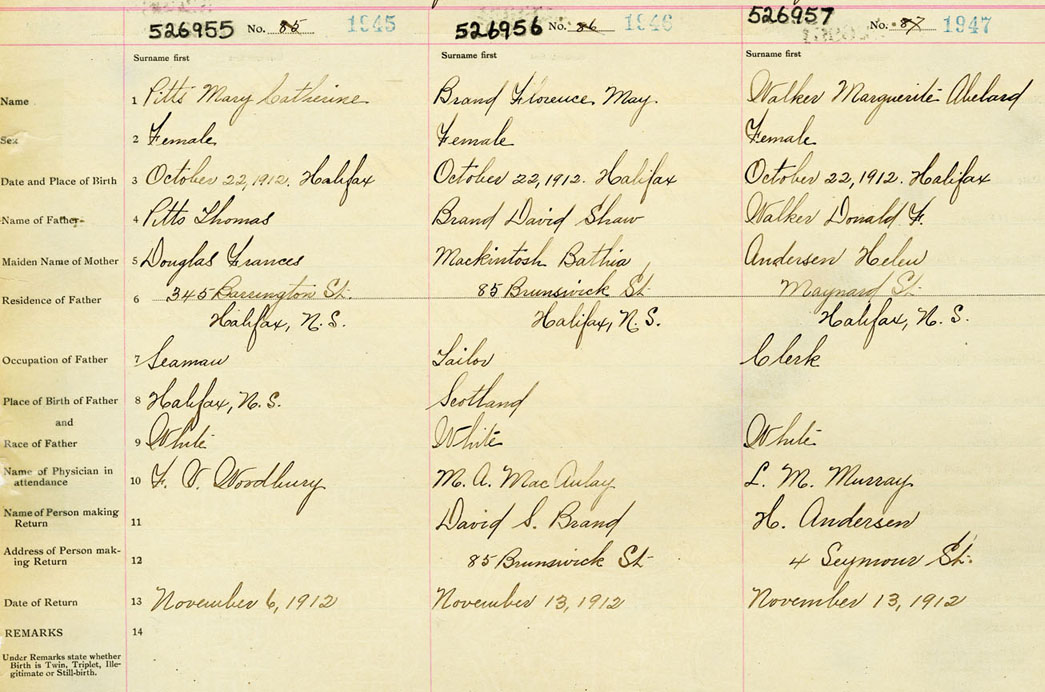 526955 No. 85 1945 526956 No. 86 1946 526957 No. 87 1947
Surname first Surname first Surname first
Name 1 Pitts Mary Catherine Brand Florence May. Walker Marguerite Abelard
Sex 2 Female Female Female
Date and Place of Birth 3 October 22, 1912. Halifax October 22, 1912. Halifax October 22, 1912. Halifax
Name of Father 4 Pitts Thomas Brand David Shaw Walker Donald F.
Maiden Name of Mother 5 Douglas Frances Mackintosh Bathia Andersen Helen
Residence of Father 6 345 Barrington St. 85 Brunswick St. Maynard St.
Halifax, N.S. Halifax, N.S. Halifax, N.S.
Occupation of Father 7 Seaman Tailor Clerk
Place of Birth of Father 8 Halifax, N.S. Scotland
and
Race of Father 9 White White White
Name of Physician in
attendance 10 F. V. Woodbury M. A. MacAulay L. M. Murray
Name of Person making
Return 11 David S. Brand H. Andersen
Address of Person mak-
ing Return 12 85 Brunswick St. 4 Seymour St.
Date of Return 13 November 6, 1912 November 13, 1912 November 13, 1912
REMARKS 14
Under Remarks state whether
Birth is Twin, Triplet, Ille-
gitimate or Still-birth.